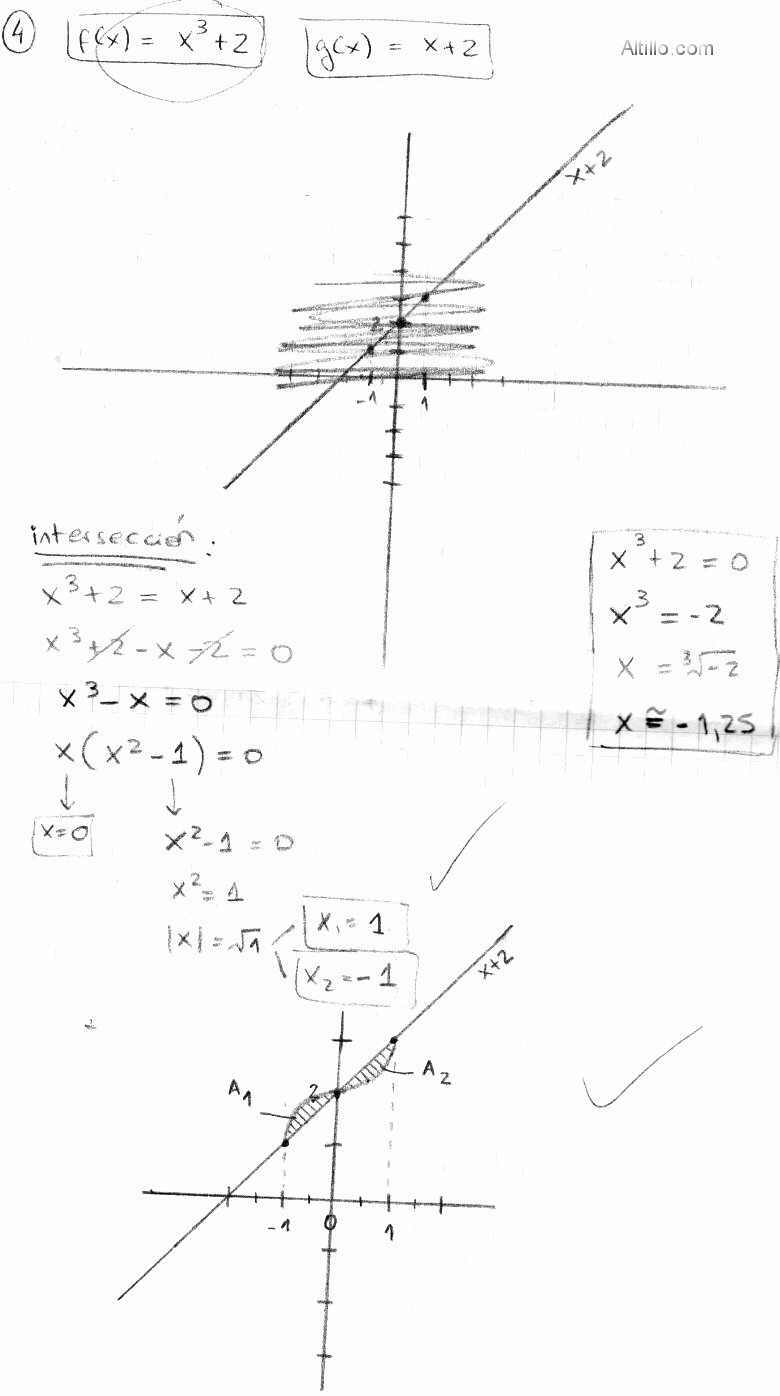 ④ f(x) = x³+2 g(x) = x+2 Altillo.com
x+2
2
-1 1
intersección:
x³+2 = x+2
x³+2-x-2 = 0
x³-x = 0
x(x²-1) = 0
↓ ↓
x=0
x²-1 = 0
x² = 1
|x| = √1
x₁ = 1
x₂ = -1
x³+2 = 0
x³ = -2
x = ³√-2
x ≅ -1,25
x+2
A₁ 2 A₂
-1 0 1